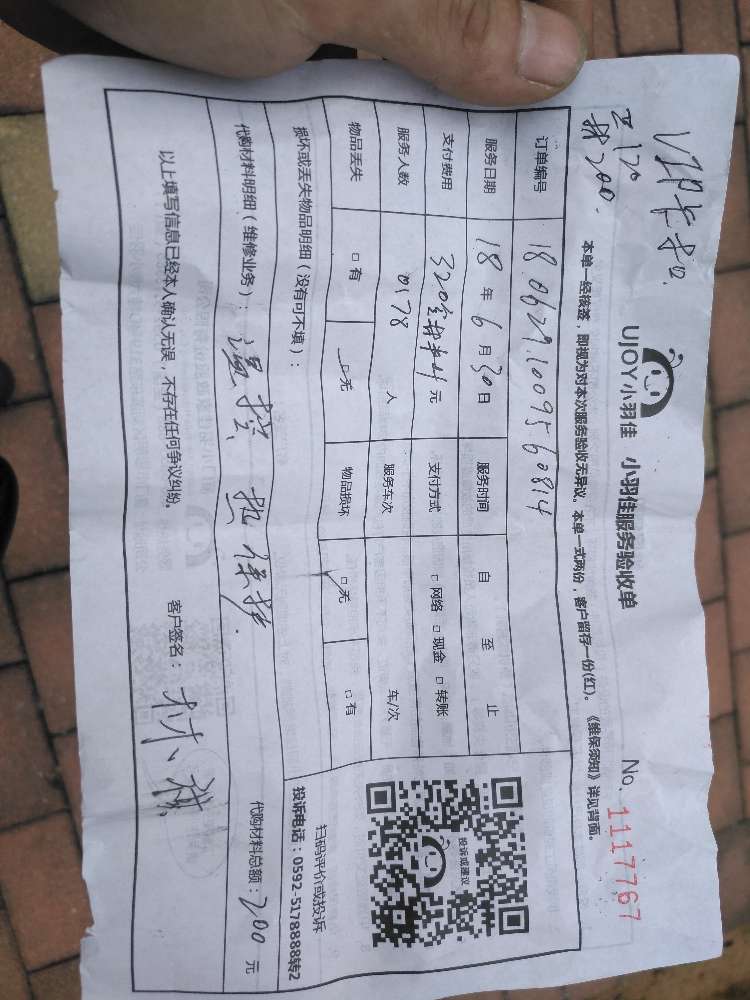 VIP卡扣
工120
材200.
UJOY小羽佳 小羽佳服务验收单
No. 1117767
本单一经核签，即视为对本次服务验收无异议。本单一式两份，客户留存一份(红)。《维保须知》详见背面。
订单编号 1806291009560814
服务日期 18 年 6 月 30 日 服务时间 自 至 止
支付费用 320 元 支付方式 □网络 □现金 □转账
服务人数 0178 人 服务车次 车/次
物品丢失 □有 □无 物品损坏 □无 □有
损坏或丢失物品明细（没有可不填）：
投诉或建议
扫码评价或投诉
投诉电话：0592-5178888转2
代购材料明细（维修业务）：温控 热保护. 代购材料总额：200 元
以上填写信息已经本人确认无误，不存在任何争议纠纷。 客户签名：